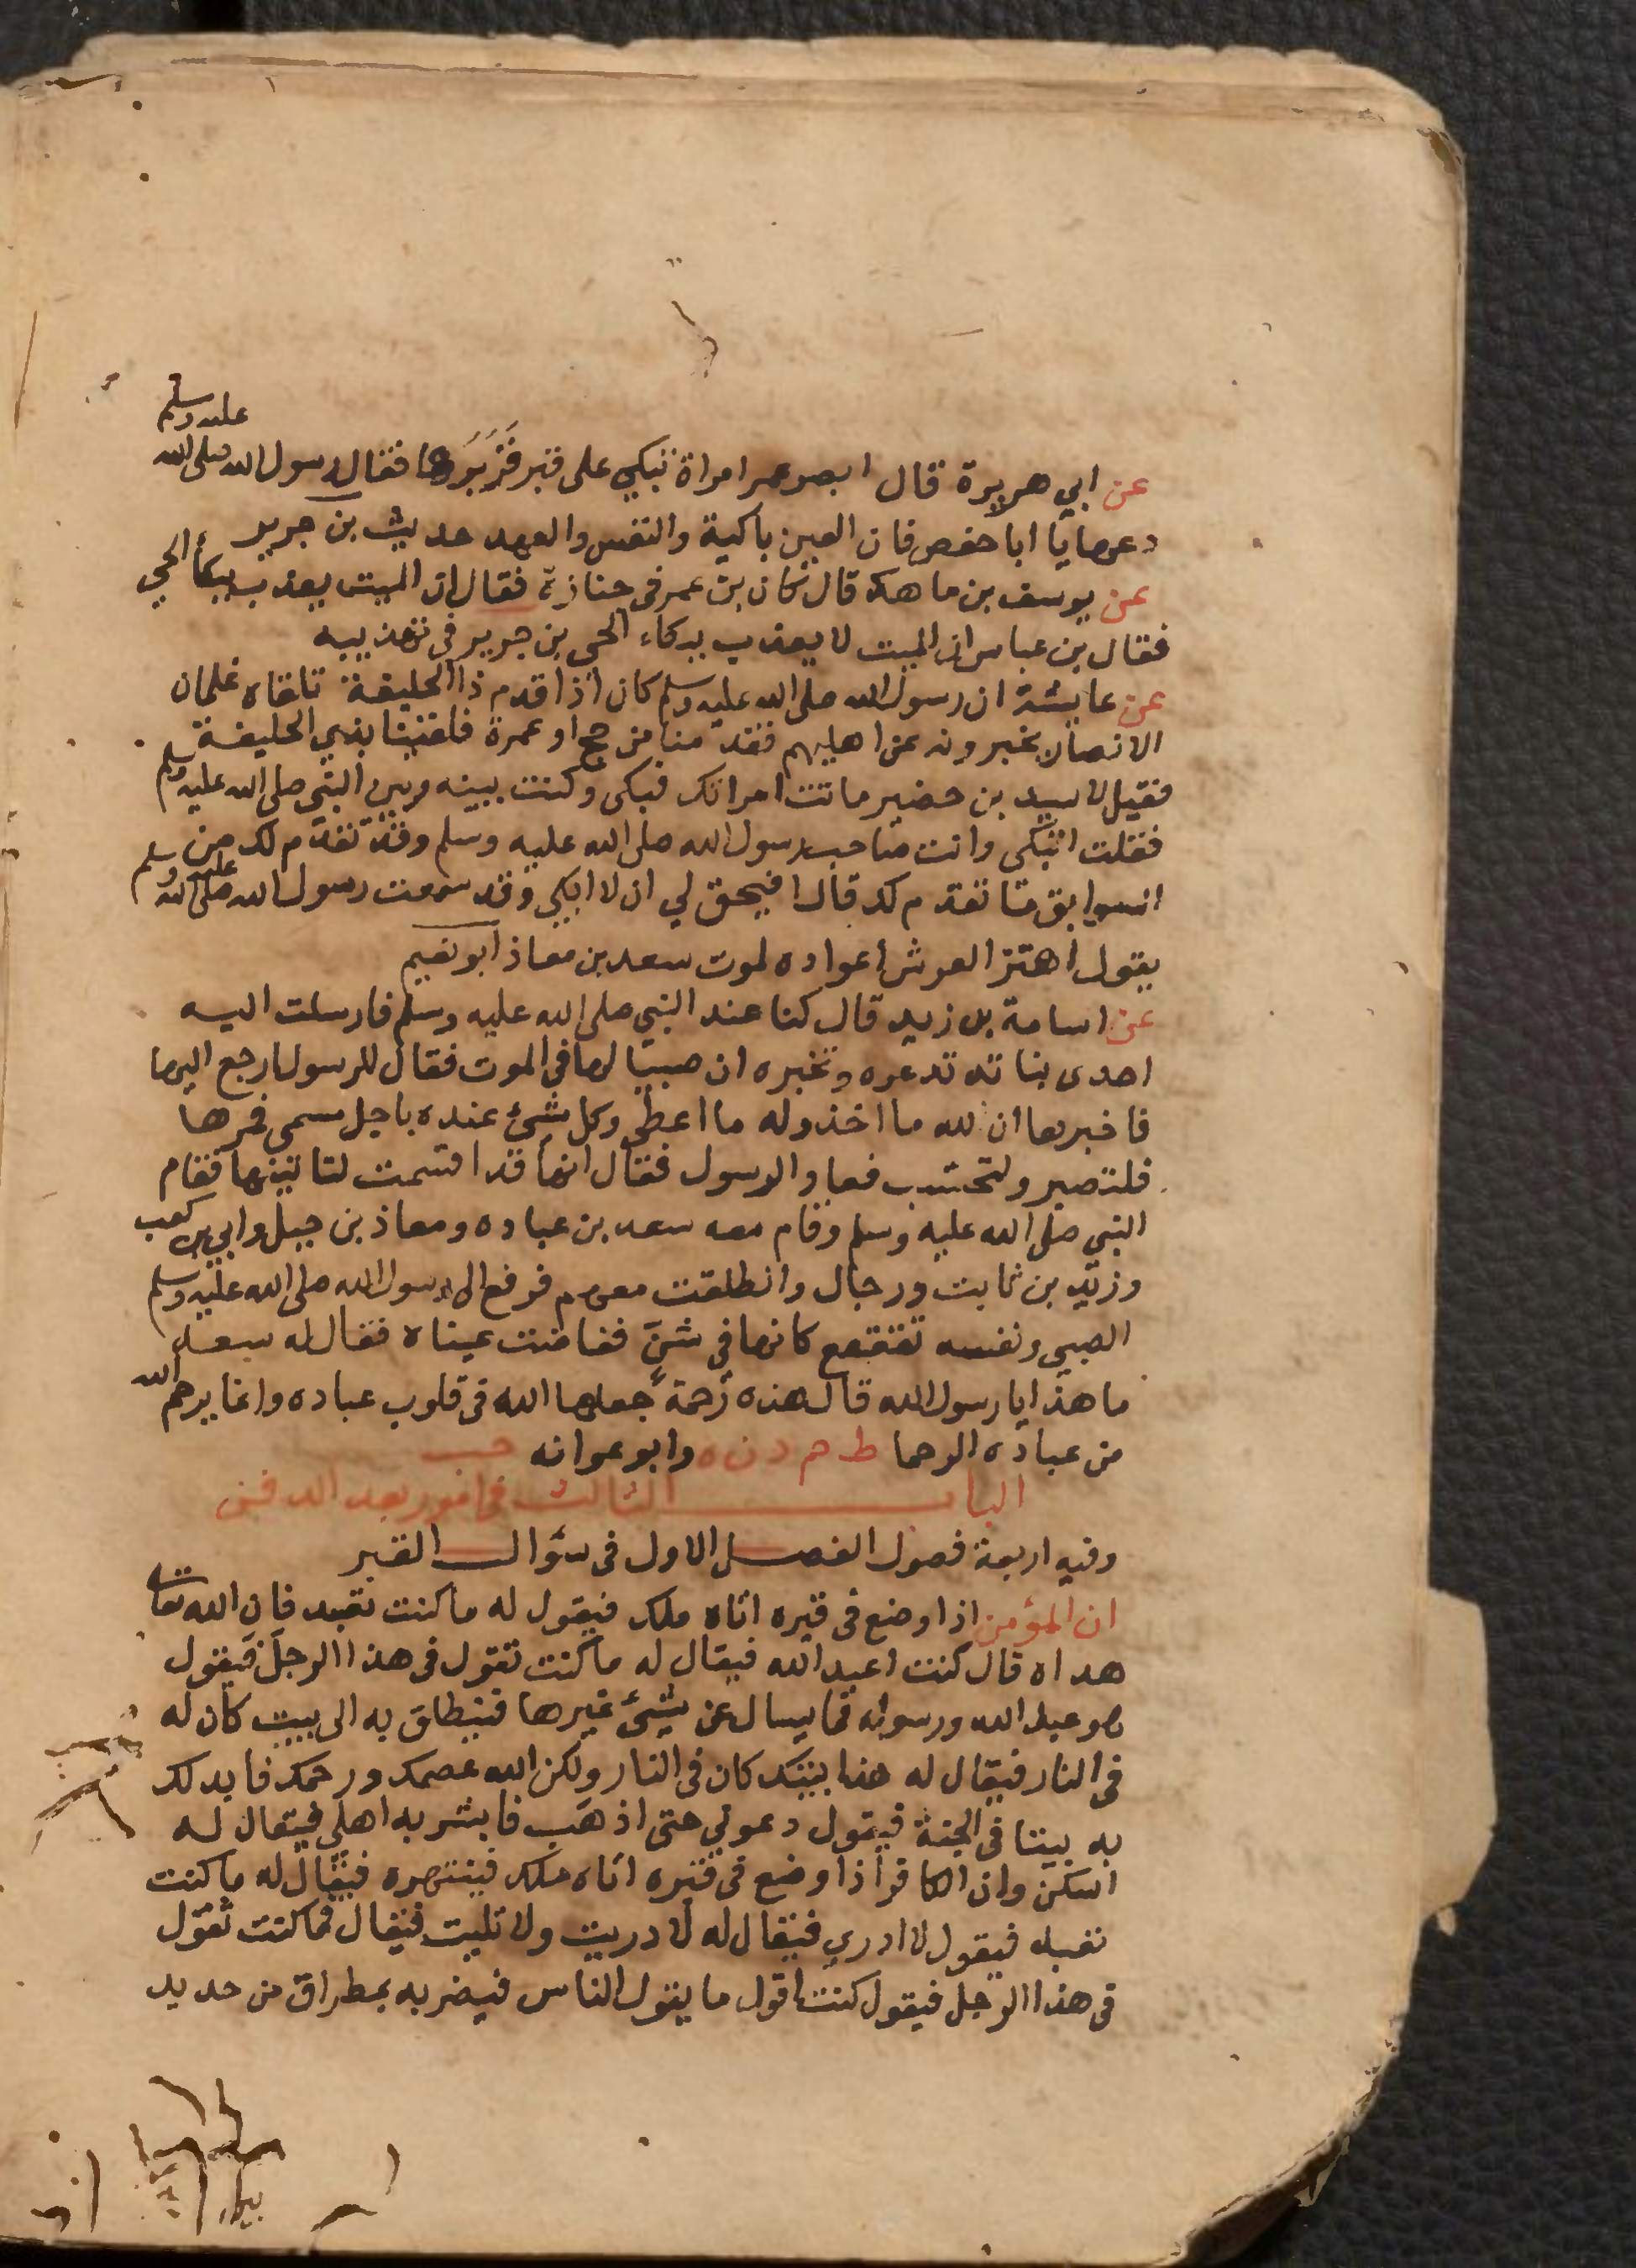 عن ابي هريرة قال ابصر عمر امراة تبكي على قبر فَزَبَرَها فقال رسول الله صلى الله عليه وسلم
دعها يا ابا حفص فان العين باكية والنفس والعهد حديث بن جرير
عن يوسف بن ماهك قال كان بن عمر في جنازة فقال ان الميت يعذب ببكاء الحي
فقال بن عباس ان الميت لا يعذب ببكاء الحي بن جرير في تهذيبه
عن عايشة ان رسول الله صلى الله عليه وسلم كان اذا قدم ذا الحليفة تلقاه غلمان
الانصار يخبرونه عن اهليهم فقدمنا من حج او عمرة فلقينا بذي الحليفة
فقيل لاسيد بن حضير ماتت امراتك فبكى وكنت بينه وبين النبي صلى الله عليه وسلم
فقلت اتبكى وانت صاحب رسول الله صلى الله عليه وسلم وقد تقدم لك من
السوابق ما تقدم لك قال افيحق لي ان لا ابكي وقد سمعت رسول الله صلى الله عليه وسلم
يقول اهتز العرش اعواده لموت سعد بن معاذ ابو نعيم
عن اسامة بن زيد قال كنا عند النبي صلى الله عليه وسلم فارسلت اليه
احدى بناته تدعوه وتخبره ان صبيا لها في الموت فقال للرسول ارجع اليها
فاخبرها ان لله ما اخذ وله ما اعطى وكل شئ عنده باجل مسمى فمرها
فلتصبر ولتحتسب فعاد الرسول فقال انها قد اقسمت لتاتينها فقام
النبي صلى الله عليه وسلم وقام معه سعد بن عباده ومعاذ بن جبل وابي بن كعب
وزيد بن ثابت ورجال وانطلقت معهم فرفع الى رسول الله صلى الله عليه وسلم
الصبي ونفسه تقعقع كانها في شن ففاضت عيناه فقال له سعد
ما هذا يا رسول الله قال هذه رحمة جعلها الله في قلوب عباده وانما يرحم الله
من عباده الرحما ط حم د ن ه وابو عوانه حب
الباب الثالث في امور بعد الدفن
وفيه اربعة فصول الفصل الاول في سؤال القبر
ان المؤمن اذا وضع في قبره اتاه ملك فيقول له ما كنت تعبد فان الله تعالى
هداه قال كنت اعبد الله فيقال له ما كنت تقول في هذا الرجل فيقول
هو عبد الله ورسوله فما يسال عن شئ غيرها فينطلق به الى بيت كان له
في النار فيقال له هذا بيتك كان في النار ولكن الله عصمك ورحمك فابدلك
به بيتا في الجنة فيقول دعوني حتى اذهب فابشر به اهلي فيقال له
اسكن وان الكافر اذا وضع في قبره اتاه ملك فينتهره فيقال له ما كنت
تعبد فيقول لا ادري فيقال له لا دريت ولا تليت فيقال فما كنت تقول
في هذا الرجل فيقول كنت اقول ما يقول الناس فيضربه بمطراق من حديد